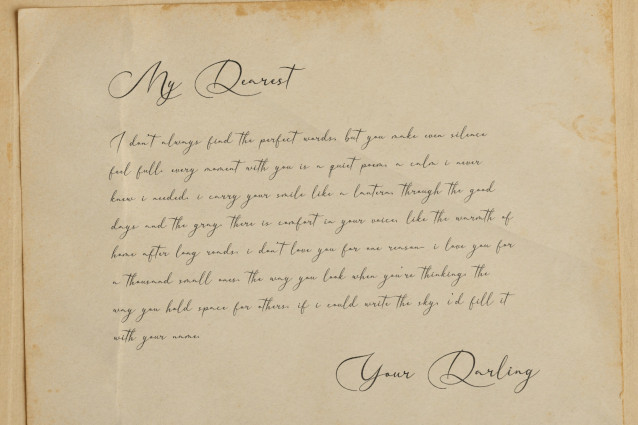 My Dearest
I don't always find the perfect words, but you make even silence
feel full. every moment with you is a quiet poem, a calm i never
knew i needed. i carry your smile like a lantern, through the good
days and the gray. there is comfort in your voice, like the warmth of
home after long roads. i don't love you for one reason- i love you for
a thousand small ones. the way you look when you're thinking, the
way you hold space for others. if i could write the sky, i'd fill it
with your name.
Your Darling